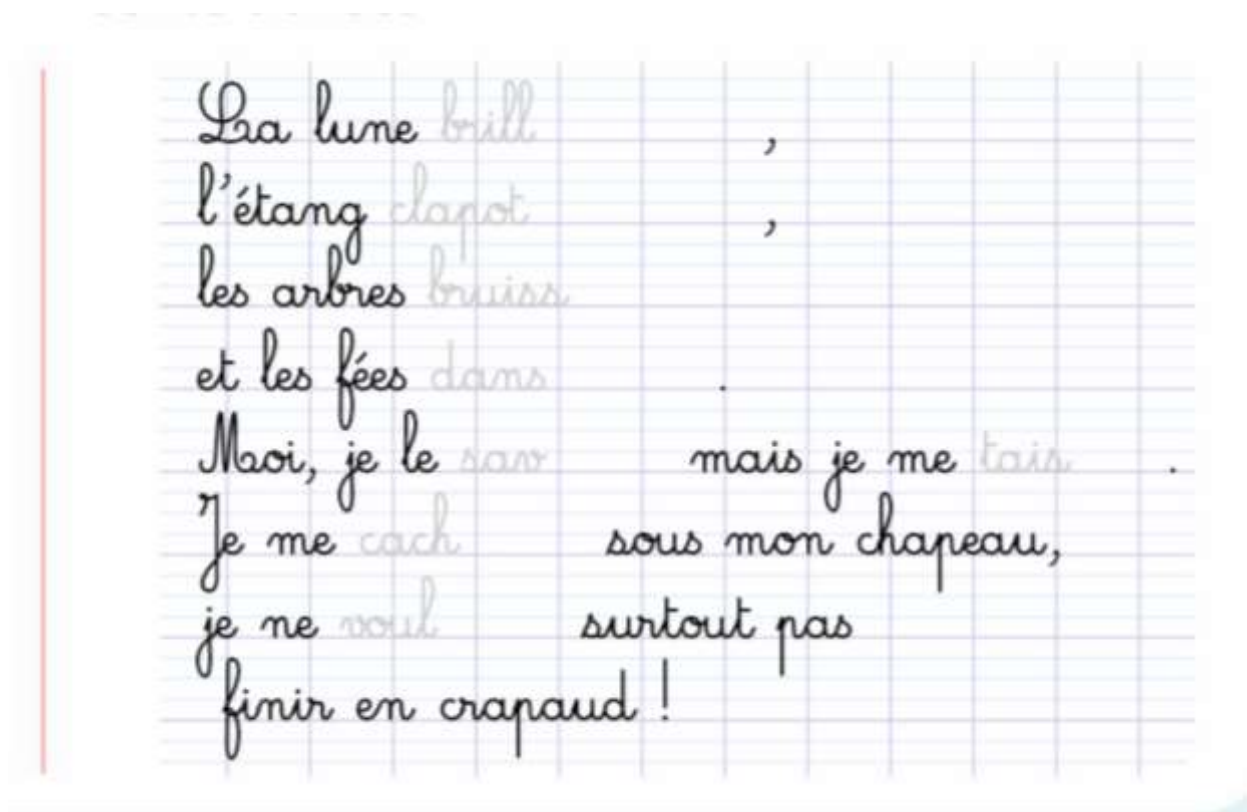 La lune brill ,
l'étang clapot ,
les arbres bruiss
et les fées dans .
Moi, je le sav mais je me tais .
Je me cach sous mon chapeau,
je ne voul surtout pas
finir en crapaud !